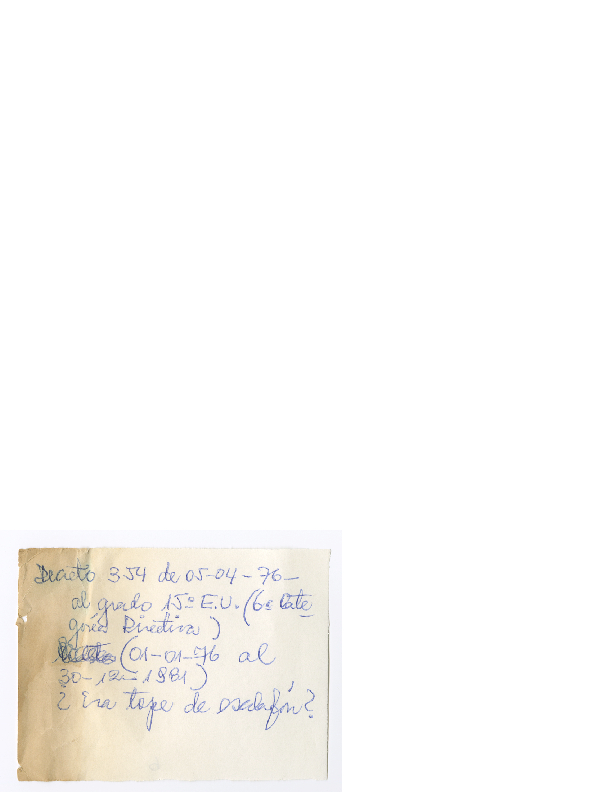 Decreto 354 de 05-04-76-
al grado 15º E.U. (6ª Cate
goría Directiva)
(01-01-76 al
30-12-1981)
¿Era tope de escalafón?